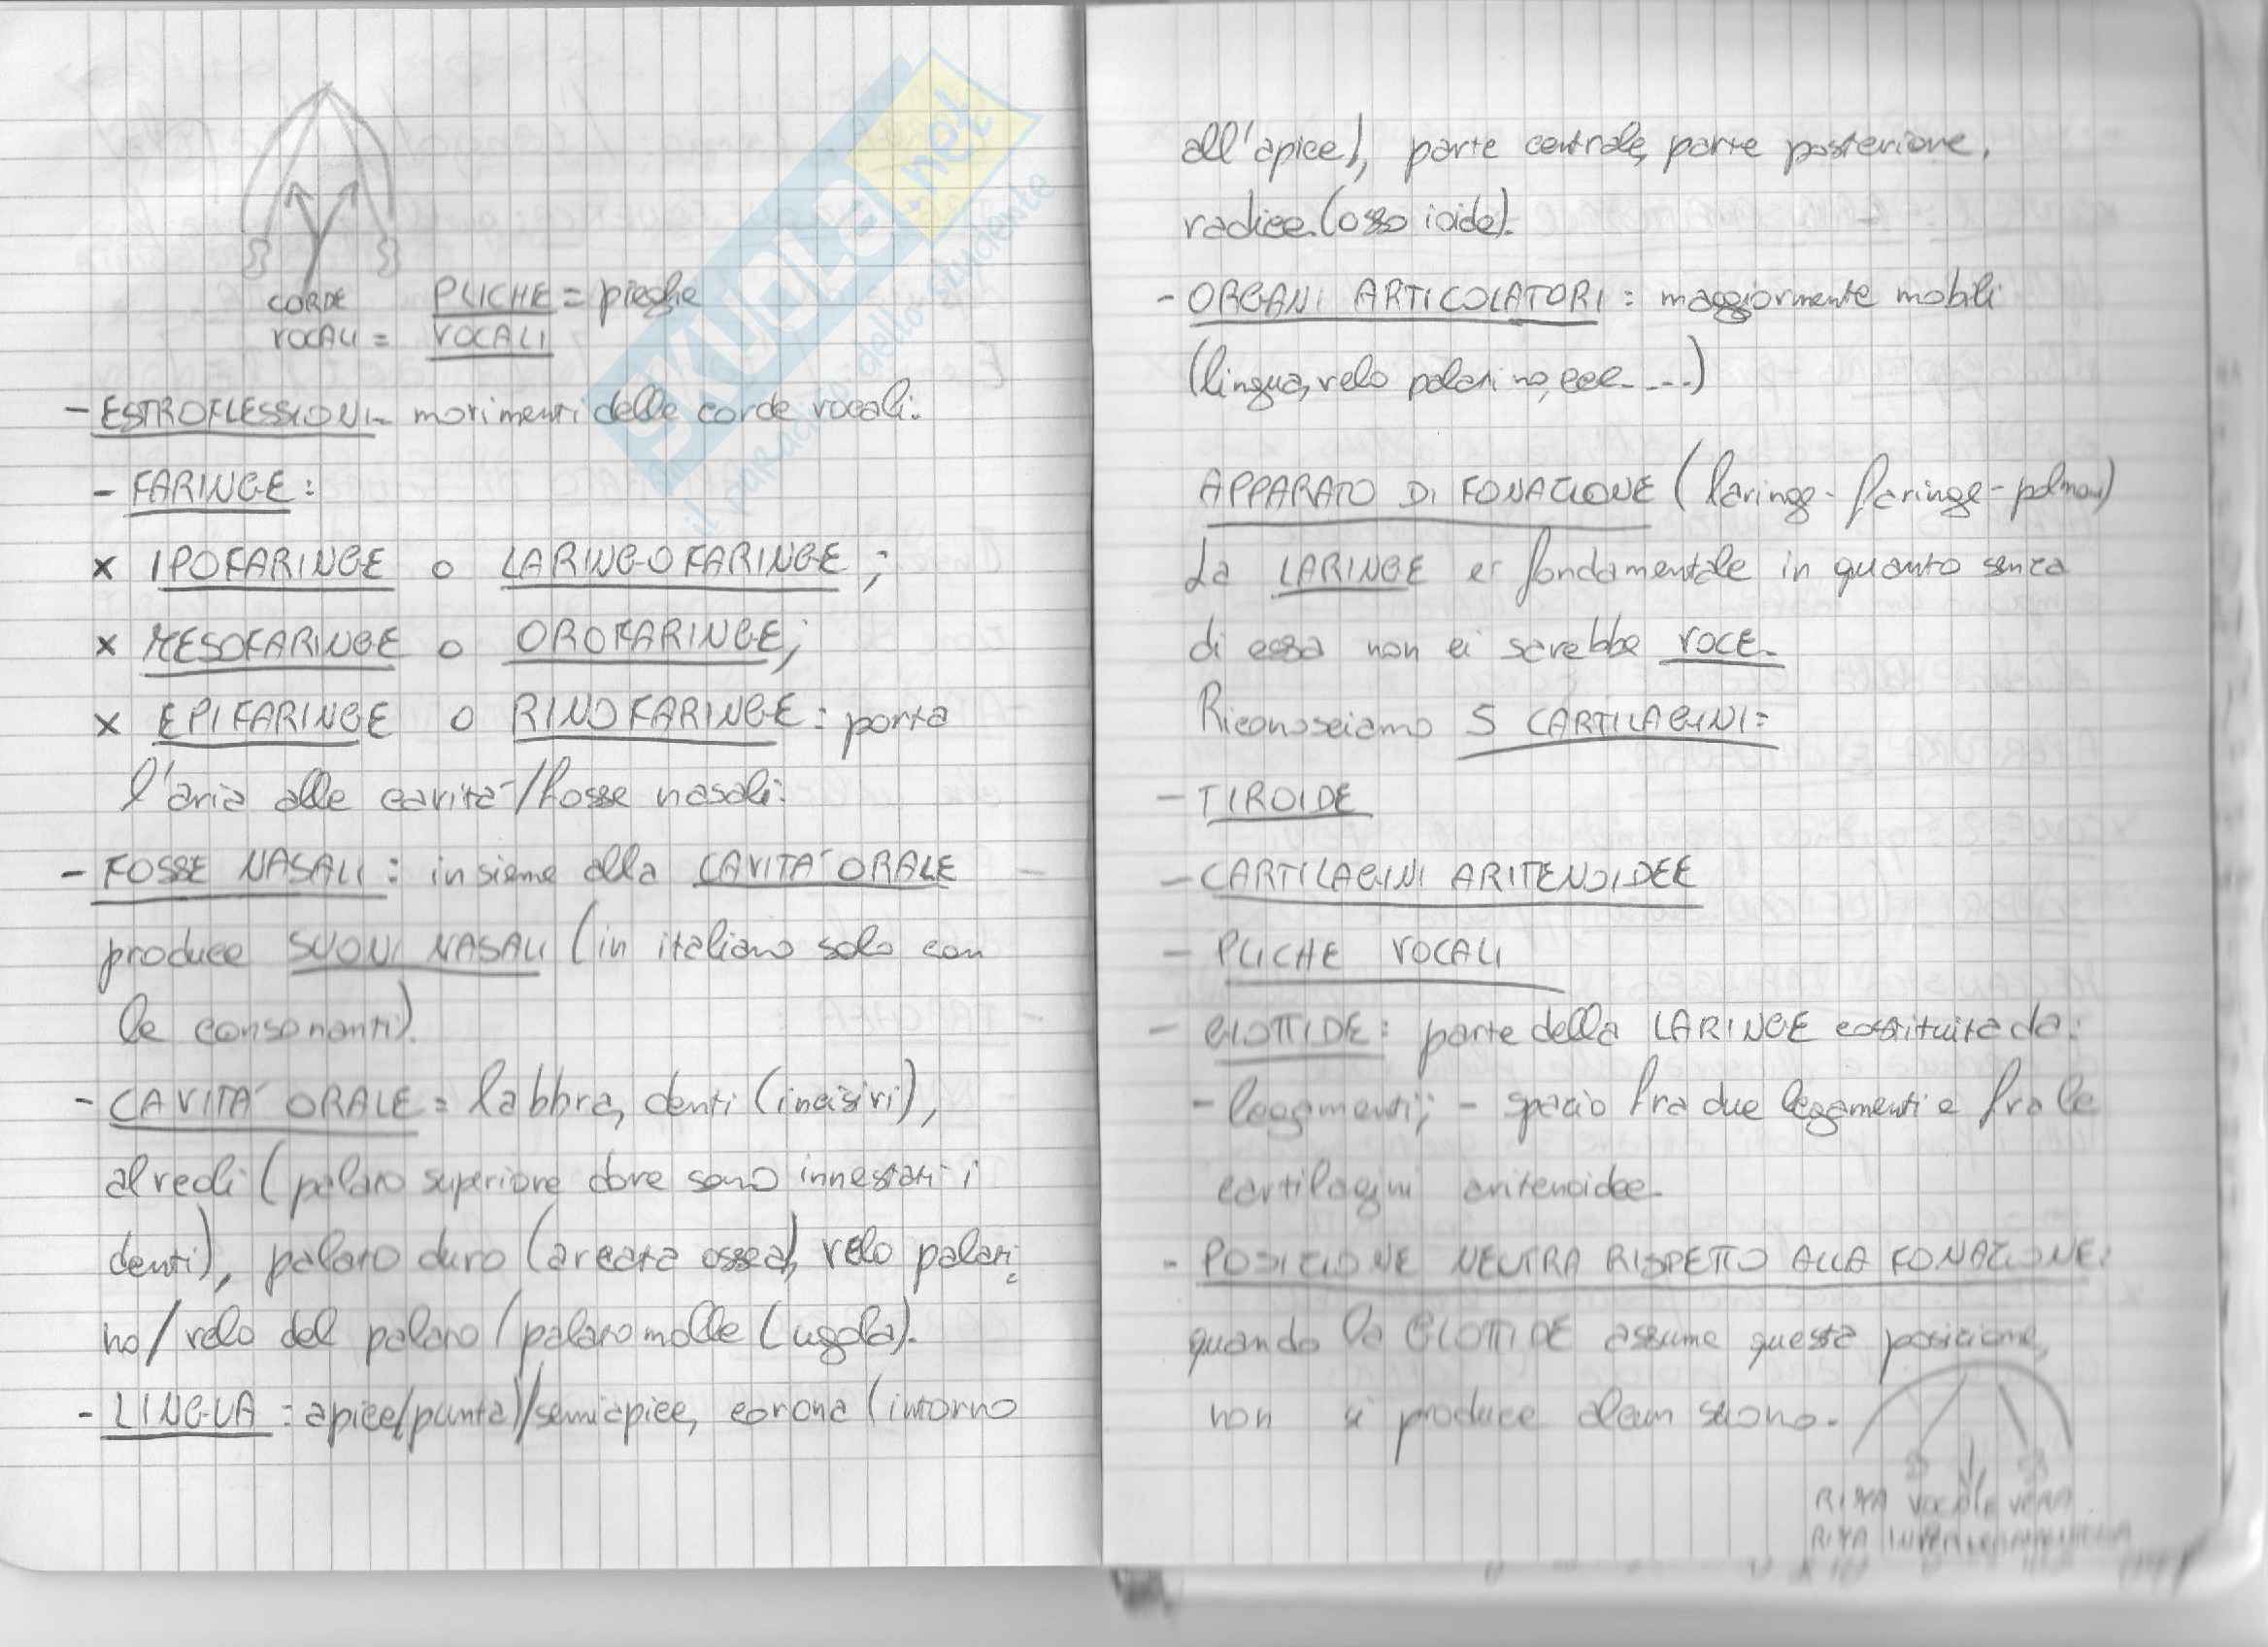 CORDE
VOCALI =
PLICHE = pieghe
VOCALI
- ESTROFLESSIONI - movimenti delle corde vocali.
- FARINGE:
x IPOFARINGE o LARINGOFARINGE;
x MESOFARINGE o OROFARINGE;
x EPIFARINGE o RINOFARINGE: porta
l'aria alle cavità/fosse nasali.
- FOSSE NASALI: insieme alla CAVITA' ORALE
produce SUONI NASALI (in italiano solo con
le consonanti).
- CAVITA' ORALE = labbra, denti (incisivi),
alveoli (palato superiore dove sono innestati i
denti), palato duro (arcata ossea), velo palati
no/velo del palato/palato molle (ugola).
- LINGUA: apice(punta)/semiapice, corona (intorno
SKUOLA.net
il paradiso dello studente
all'apice), parte centrale, parte posteriore,
radice (osso ioide).
- ORGANI ARTICOLATORI: maggiormente mobili
(lingua, velo palatino, ecc....)
APPARATO DI FONAZIONE (laringe - faringe - polmoni)
La LARINGE e' fondamentale in quanto senza
di essa non ci sarebbe VOCE.
Riconosciamo 5 CARTILAGINI:
- TIROIDE
- CARTILAGINI ARITENOIDEE
- PLICHE VOCALI
- GLOTTIDE: parte della LARINGE costituita da:
- legamenti; - spazio fra due legamenti e fra le
cartilagini aritenoidee.
- POSIZIONE NEUTRA RISPETTO ALLA FONAZIONE:
quando la GLOTTIDE assume questa posizione,
non si produce alcun suono.
RIMA VOCALE VERA
RIMA